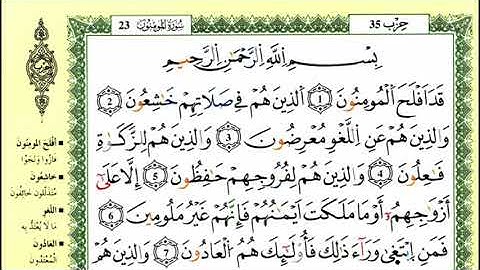 حِزْب 35
سُورَةُ المُومِنُونَ 23
بِسْمِ اِللَّهِ اِلرَّحْمَٰنِ اِلرَّحِيمِ
قَدَ اَفْلَحَ اَلْمُومِنُونَ 1 اَلذِينَ هُمْ فِي صَلَاتِهِمْ خَٰشِعُونَ 2
وَالذِينَ هُمْ عَنِ اِللَّغْوِ مُعْرِضُونَ 3 وَالذِينَ هُمْ لِلزَّكَوٰةِ
فَٰعِلُونَ 4 وَالذِينَ هُمْ لِفُرُوجِهِمْ حَٰفِظُونَ 5 إِلَّا عَلَىٰ
أَزْوَٰجِهِمُۥ أَوْ مَا مَلَكَتَ اَيْمَٰنُهُمْ فَإِنَّهُمْ غَيْرُ مَلُومِينَ 6
فَمَنِ اِبْتَغَىٰ وَرَآءَ ذَٰلِكَ فَأُوْلَٰٓئِكَ هُمُ اُلْعَادُونَ 7 وَالذِينَ هُمْ
حِزْب
أَفْلَحَ المُومِنُونَ
فَازُوا وَنَجَوْا
خَاشِعُونَ
مُتَذَلِّلُونَ خَائِفُونَ
اللَّغْو
مَا لَا يُعْتَدُّ بِهِ
العَادُونَ
المُعْتَدُونَ